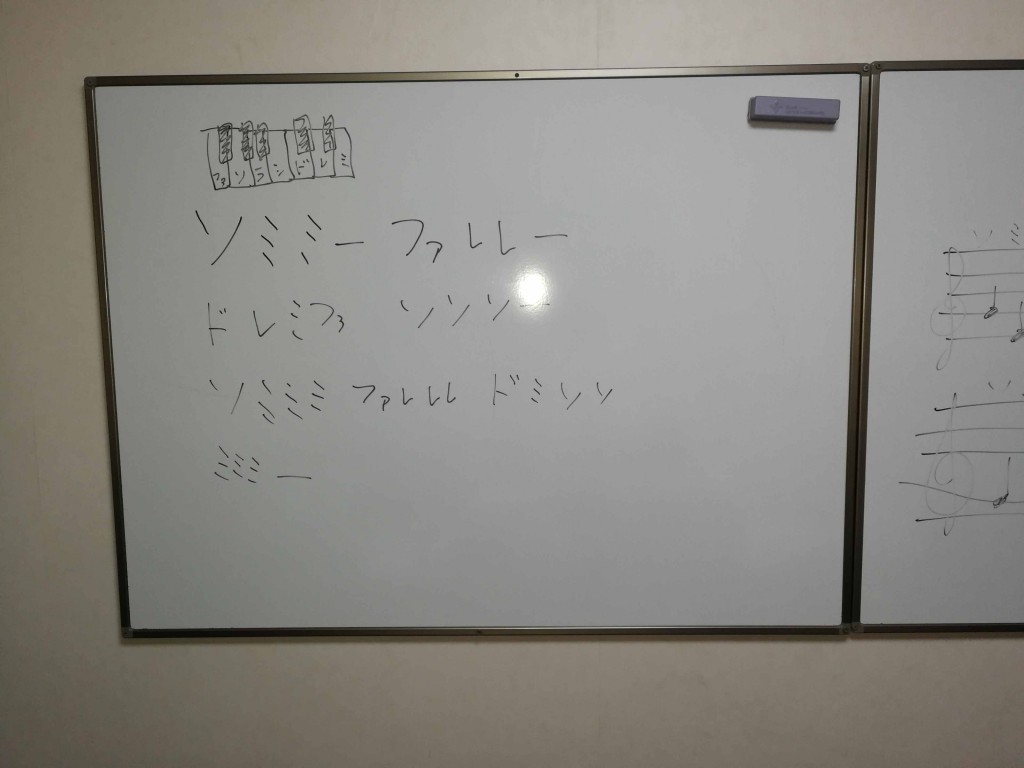 ファ ソ ラ シ ド レ ミ
ソミミー ファレレー
ドレミファ ソソソー
ソミミミ ファレレレ ドミソソ
ミミミー
ソ ミ
ソ